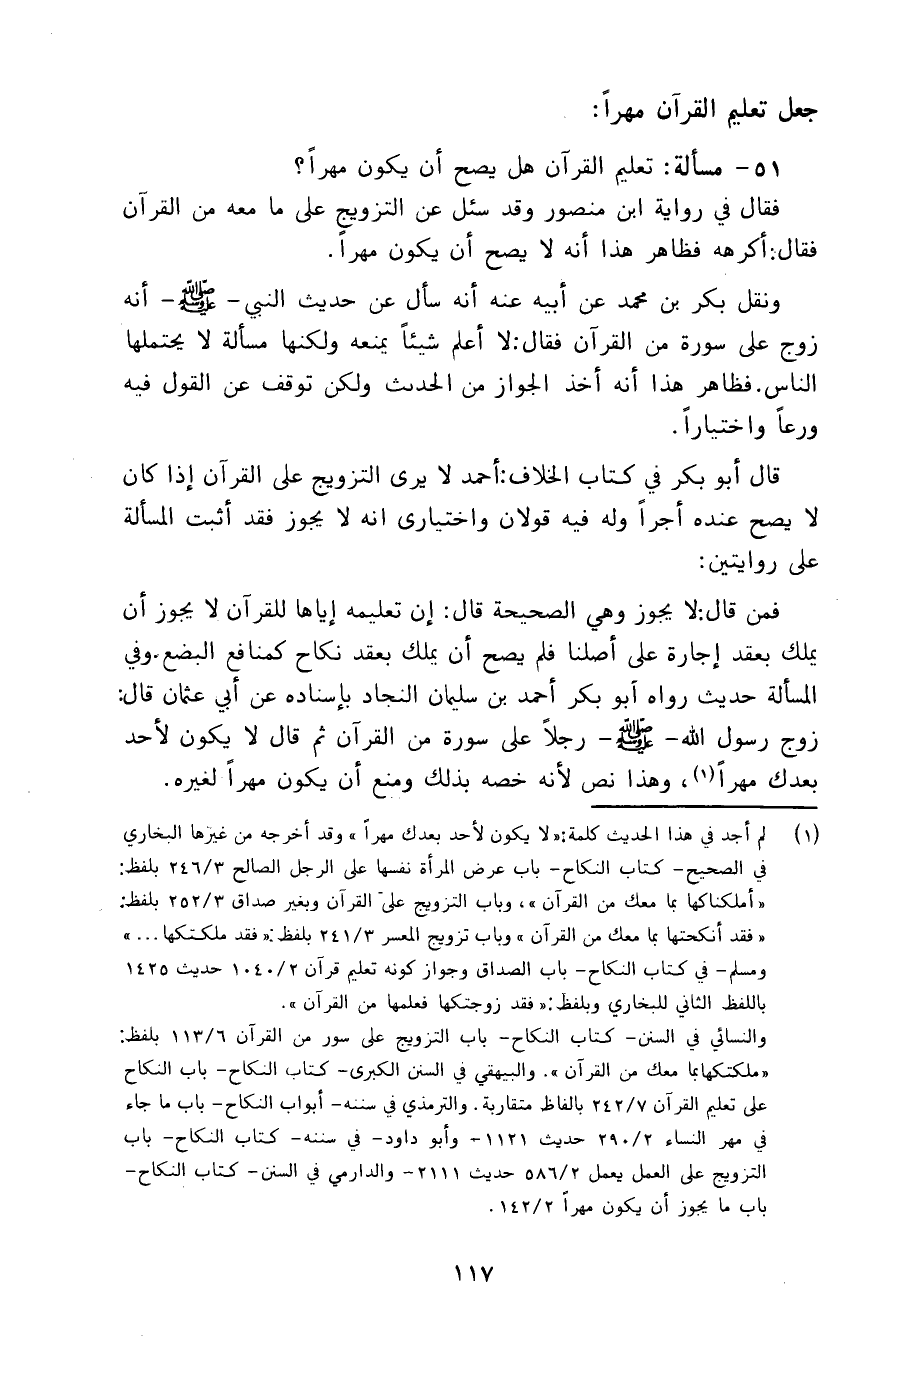 جعل تعليم القرآن مهراً:
٥١- مسألة: تعليم القرآن هل يصح أن يكون مهراً؟
فقال في رواية ابن منصور وقد سئل عن التزويج على ما معه من القرآن
فقال:أكرهه فظاهر هذا أنه لا يصح أن يكون مهراً.
ونقل بكر بن محمد عن أبيه عنه أنه سأل عن حديث النبي- ﷺ- أنه
زوج على سورة من القرآن فقال:لا أعلم شيئاً يمنعه ولكنها مسألة لا يحتملها
الناس.فظاهر هذا أنه أخذ الجواز من الحديث ولكن توقف عن القول فيه
ورعاً واختياراً.
قال أبو بكر في كتاب الخلاف:أحمد لا يرى التزويج على القرآن إذا كان
لا يصح عنده أجراً وله فيه قولان واختيارى انه لا يجوز فقد أثبت المسألة
على روايتين:
فمن قال:لا يجوز وهي الصحيحة قال: إن تعليمه إياها للقرآن لا يجوز أن
يملك بعقد إجارة على أصلنا فلم يصح أن يملك بعقد نكاح كمنافع البضع.وفي
المسألة حديث رواه أبو بكر أحمد بن سليمان النجاد بإسناده عن أبي عثمان قال:
زوج رسول الله- ﷺ- رجلاً على سورة من القرآن ثم قال لا يكون لأحد
بعدك مهراً(١)، وهذا نص لأنه خصه بذلك ومنع أن يكون مهراً لغيره.
(١) لم أجد في هذا الحديث كلمة:«لا يكون لأحد بعدك مهراً» وقد أخرجه من غيرها البخاري
في الصحيح- كتاب النكاح- باب عرض المرأة نفسها على الرجل الصالح ٢٤٦/٣ بلفظ:
«أملكناكها بما معك من القرآن»، وباب التزويج على القرآن وبغير صداق ٢٥٢/٣ بلفظ:
«فقد أنكحتها بما معك من القرآن» وباب تزويج المعسر ٢٤١/٣ بلفظ:«فقد ملكتكها...»
ومسلم- في كتاب النكاح- باب الصداق وجواز كونه تعليم قرآن ١٠٤٠/٢ حديث ١٤٢٥
باللفظ الثاني للبخاري وبلفظ:«فقد زوجتكها فعلمها من القرآن».
والنسائي في السنن- كتاب النكاح- باب التزويج على سور من القرآن ١١٣/٦ بلفظ:
«ملكتكهابما معك من القرآن». والبيهقي في السنن الكبرى- كتاب النكاح- باب النكاح
على تعليم القرآن ٢٤٢/٧ بالفاظ متقاربة. والترمذي في سننه- أبواب النكاح- باب ما جاء
في مهر النساء ٢٩٠/٢ حديث ١١٢١- وأبو داود- في سننه- كتاب النكاح- باب
التزويج على العمل يعمل ٥٨٦/٢ حديث ٢١١١- والدارمي في السنن- كتاب النكاح-
باب ما يجوز أن يكون مهراً ١٤٢/٢.
١١٧